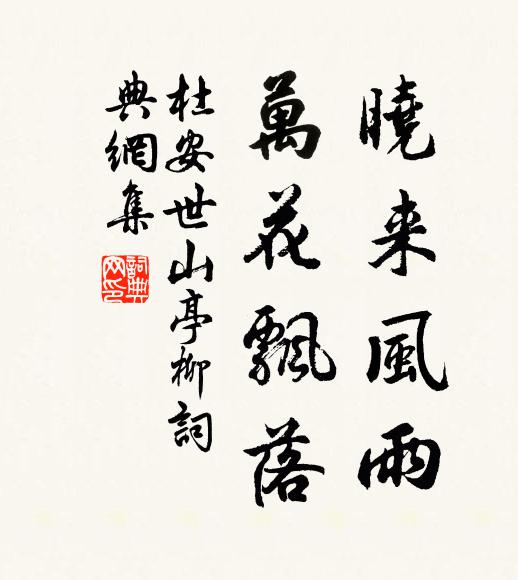 曉来風雨
萬花飄落
杜安世山亭柳詞
典網集
詞典網印